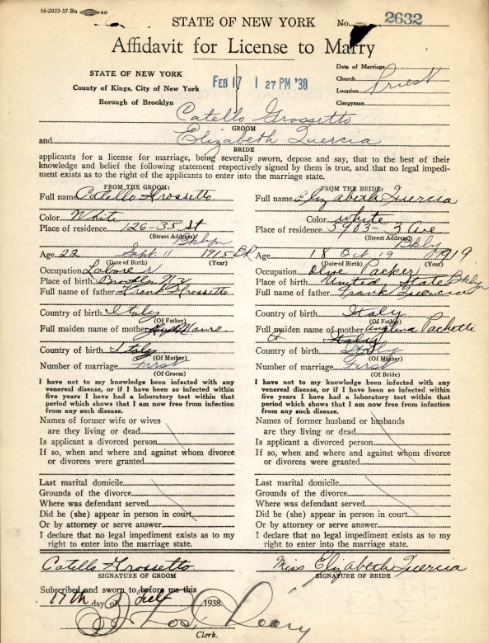 STATE OF NEW YORK
No. 2632
Affidavit for License to Marry
STATE OF NEW YORK
County of Kings, City of New York
Borough of Brooklyn
FEB 17 1 27 PM '38
Date of Marriage
Church
Location
Clergyman
Priest
Catello Grossetto
GROOM
and Elizabeth Quercia
BRIDE
applicants for a license for marriage, being severally sworn, depose and say, that to the best of their
knowledge and belief the following statement respectively signed by them is true, and that no legal impedi-
ment exists as to the right of the applicants to enter into the marriage state.
FROM THE GROOM:
Full name Catello Grossetto
Color White
Place of residence 126-35 St
(Street Address)
Bklyn
Age 22 Sept 11 1915
(Date of Birth) (Year)
Occupation Laborer
Place of birth Brooklyn N.Y.
Full name of father Frank Grossetto
Country of birth Italy
(Of Father)
Full maiden name of mother
Country of birth Italy
(Of Mother)
Number of marriage First
(Of Groom)
I have not to my knowledge been infected with any
venereal disease, or if I have been so infected within
five years I have had a laboratory test within that
period which shows that I am now free from infection
from any such disease.
Names of former wife or wives
are they living or dead
Is applicant a divorced person
If so, when and where and against whom divorce
or divorces were granted
Last marital domicile
Grounds of the divorce
Where was defendant served
Did he (she) appear in person in court
Or by attorney or serve answer
I declare that no legal impediment exists as to my
right to enter into the marriage state.
Catello Grossetto
SIGNATURE OF GROOM
FROM THE BRIDE:
Full name Elizabeth Quercia
Color white
Place of residence 5903-3 Ave
(Street Address)
Bkly
Age 18 Oct 19 1919
(Date of Birth) (Year)
Occupation Olive Packer
Place of birth United States Bklyn
Full name of father Frank Quercia
Country of birth Italy
(Of Father)
Full maiden name of mother Angelina Pachotte
Country of birth Italy
(Of Mother)
Number of marriage First
(Of Bride)
I have not to my knowledge been infected with any
venereal disease, or if I have been so infected within
five years I have had a laboratory test within that
period which shows that I am now free from infection
from any such disease.
Names of former husband or husbands
are they living or dead
Is applicant a divorced person
If so, when and where and against whom divorce
or divorces were granted
Last marital domicile
Grounds of the divorce
Where was defendant served
Did he (she) appear in person in court
Or by attorney or serve answer
I declare that no legal impediment exists as to my
right to enter into the marriage state.
Miss Elizabeth Quercia
SIGNATURE OF BRIDE
Subscribed and sworn to before me this
17th day of Feb 1938
Clerk.